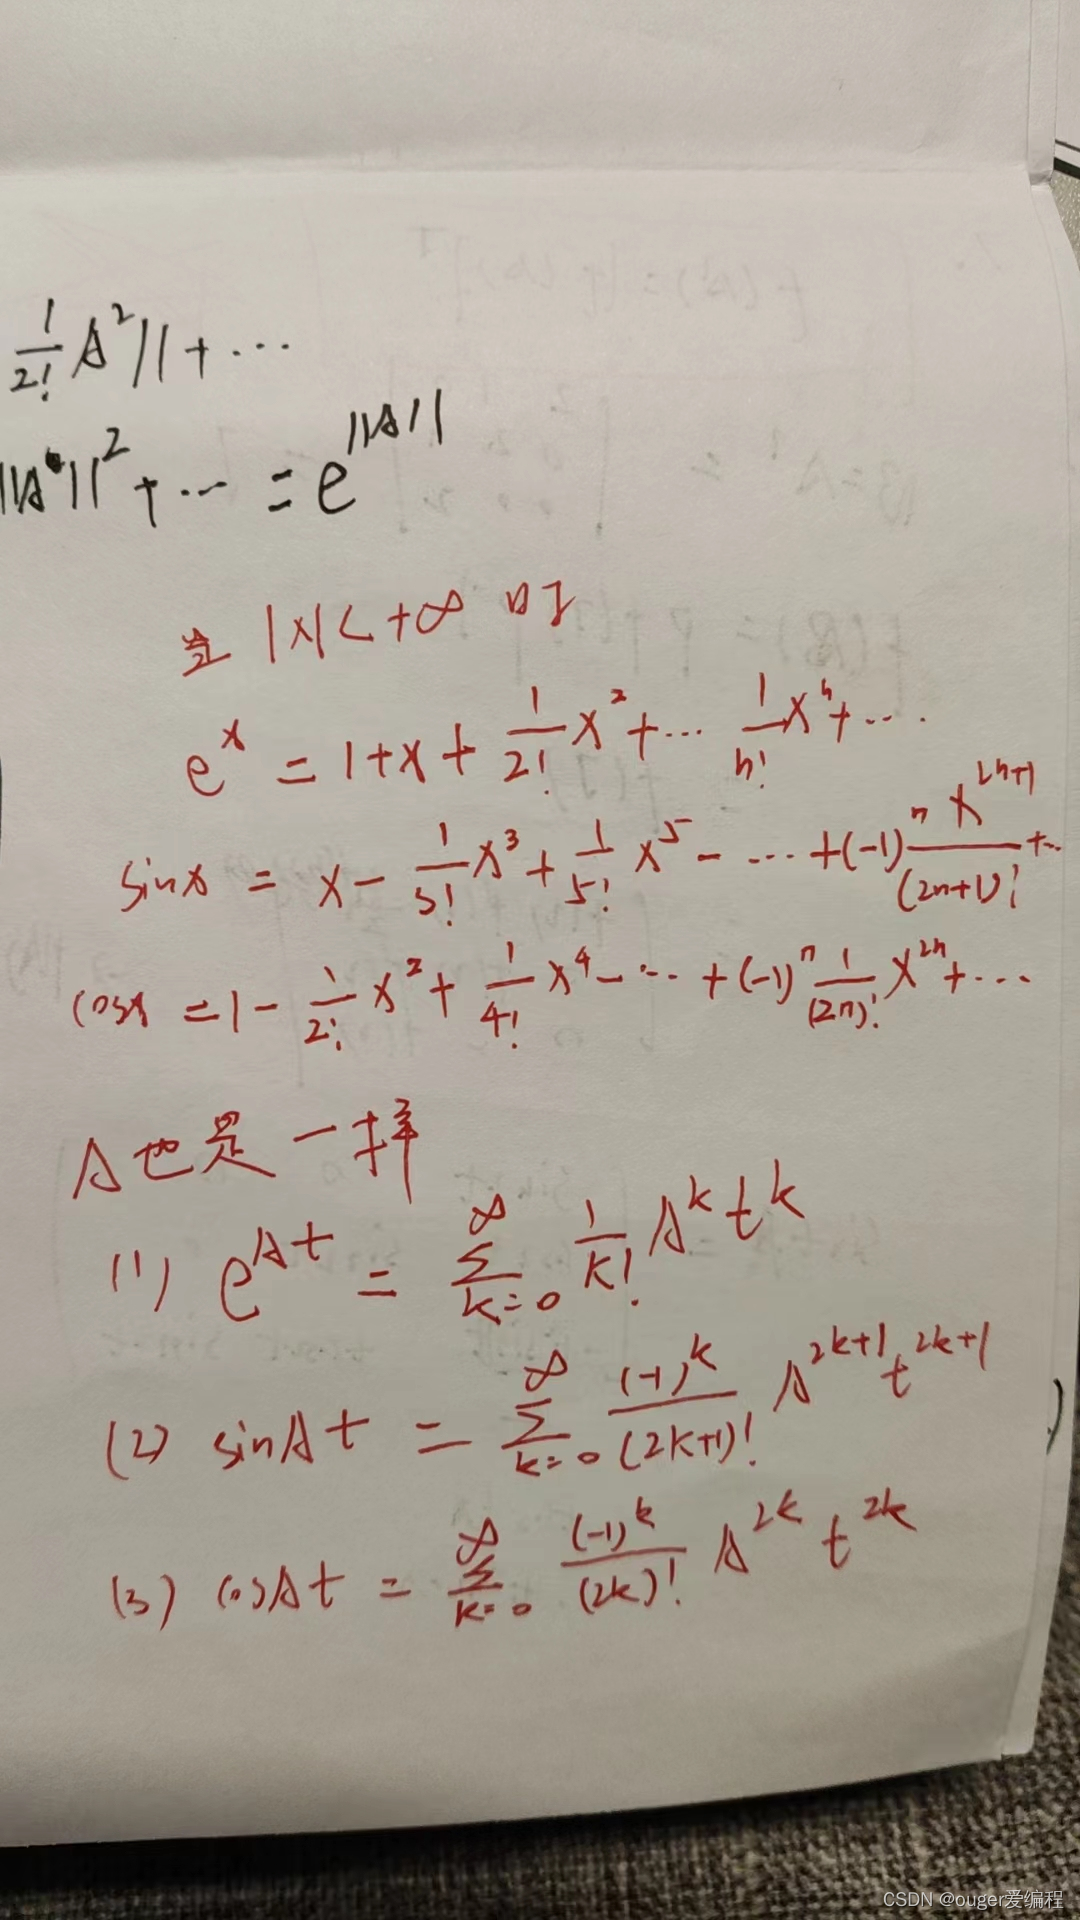 1/2! A²|| + ···
||A||² + ··· = e^||A||
当 |x| < +∞ 时
e^x = 1 + x + 1/2! x² + ··· 1/n! x^n + ···
sinx = x - 1/3! x³ + 1/5! x⁵ - ··· + (-1)^n x^(2n+1)/(2n+1)! + ··
cosx = 1 - 1/2! x² + 1/4! x⁴ - ··· + (-1)^n 1/(2n)! x^(2n) + ···
A也是一样
(1) e^(At) = ∑_(k=0)^∞ 1/k! A^k t^k
(2) sinAt = ∑_(k=0)^∞ (-1)^k/(2k+1)! A^(2k+1) t^(2k+1)
(3) cosAt = ∑_(k=0)^∞ (-1)^k/(2k)! A^(2k) t^(2k)
CSDN @ouger爱编程